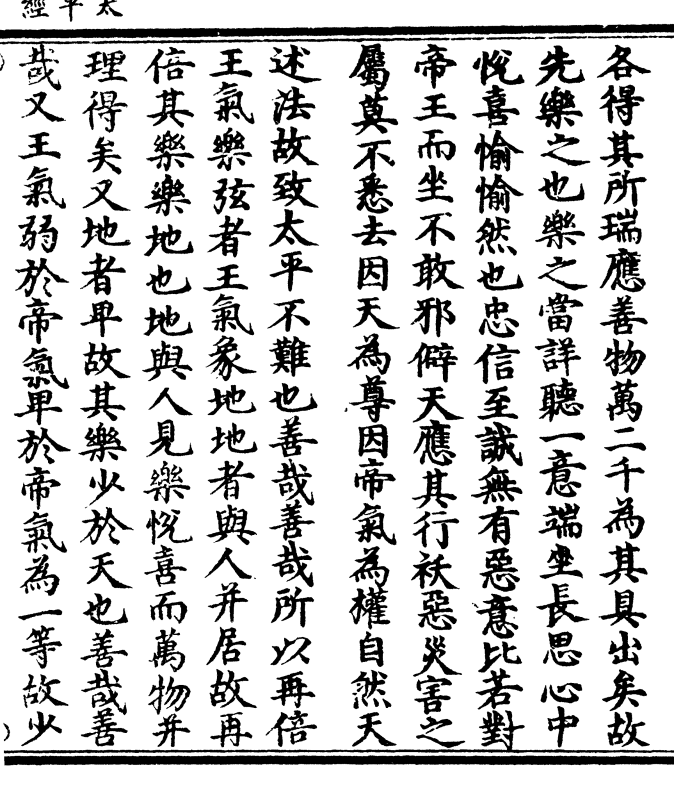 太平經
各得其所瑞應善物萬二千為其具出矣故
先樂之也樂之當詳聽一意端坐長思心中
悅喜愉愉然也忠信至誠無有惡意比若對
帝王而坐不敢邪僻天應其行袄惡災害之
屬莫不悉去因天為尊因帝氣為權自然天
述法故致太平不難也善哉善哉所以再倍
王氣樂弦者王氣象地地者與人并居故再
倍其樂樂地也地與人見樂悅喜而萬物并
理得矣又地者卑故其樂少於天也善哉善
哉又王氣弱於帝氣卑於帝氣為一等故少